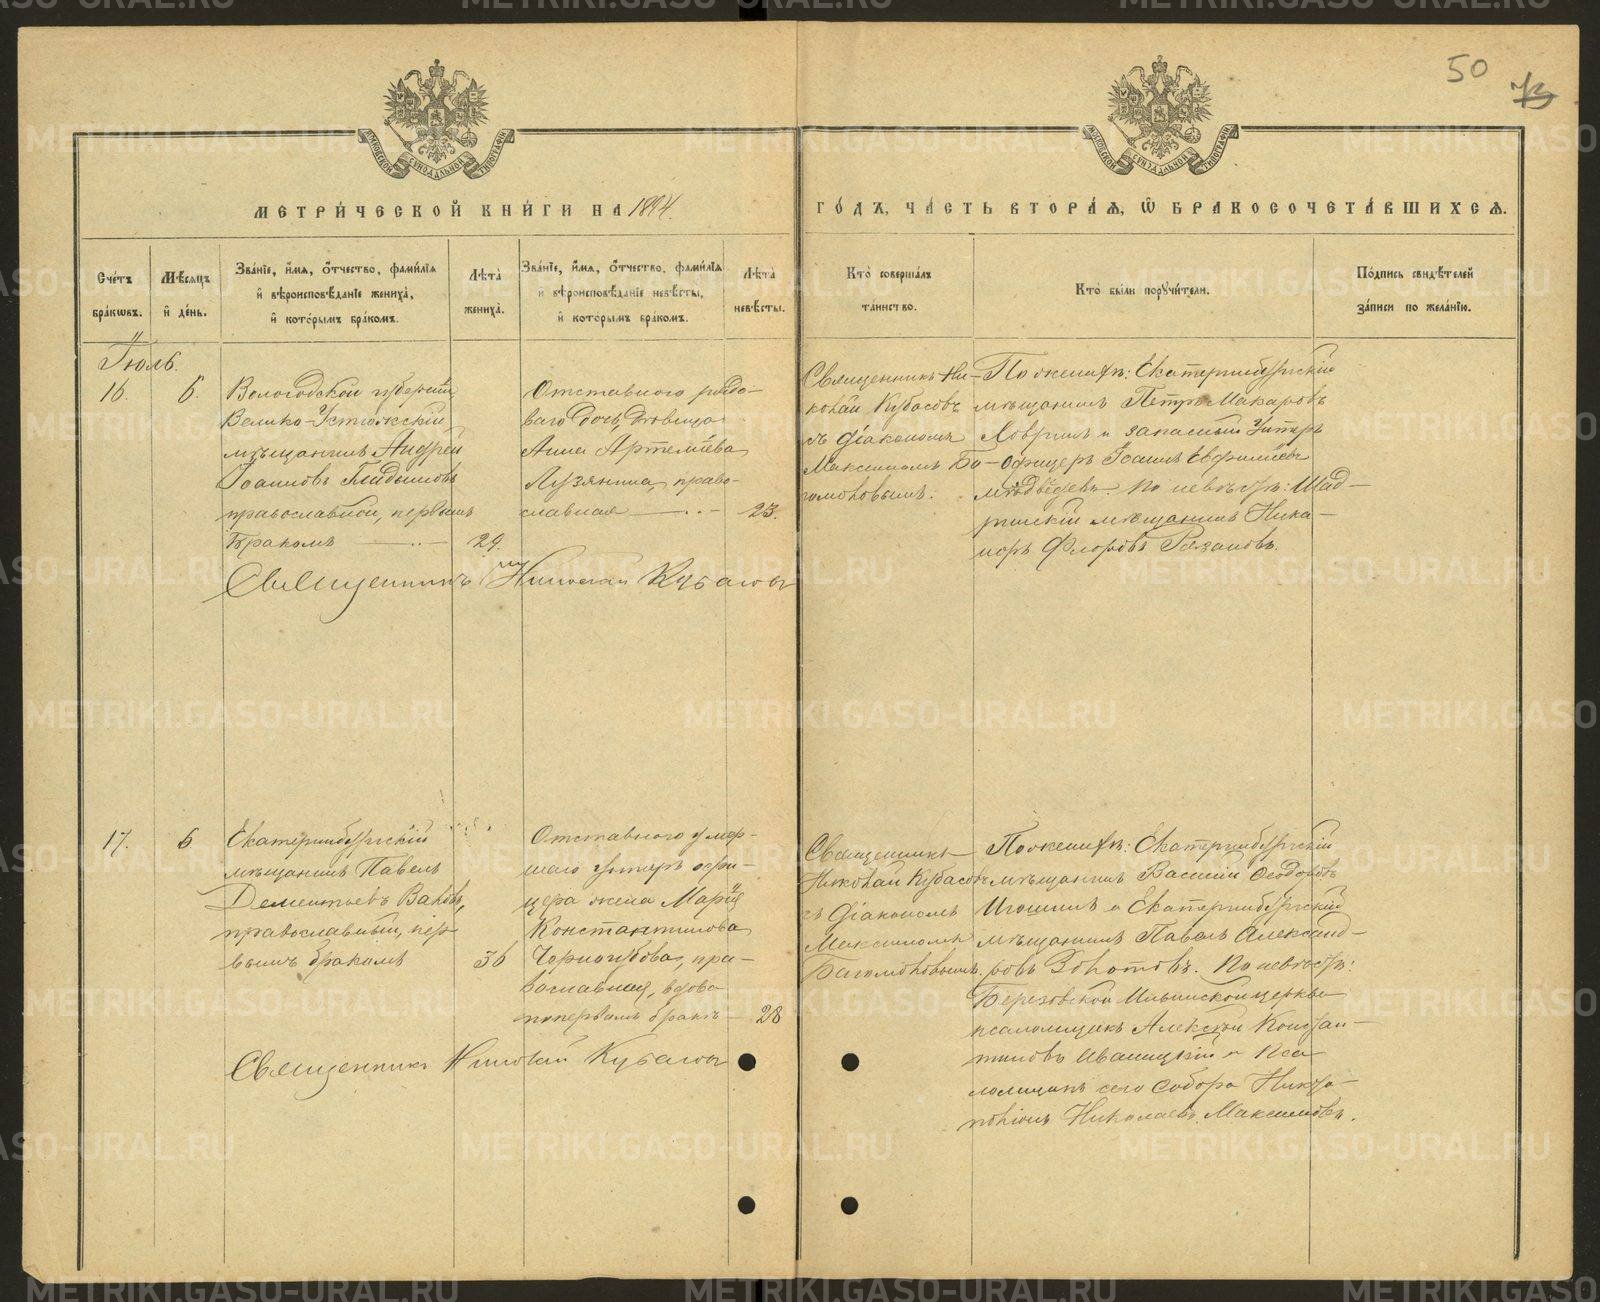 50
МЕТРИ́ЧЕСКОЙ КНИ́ГИ НА 1894.
ГО́ДЪ, ЧА́СТЬ ВТОРА́Ѧ, Ѡ БРАКОСОЧЕТА́ВШИХСѦ.
Сче́тъ бра́кѡвъ.
Мѣ́сѧцъ и҆ де́нь.
Зва́нїе, и҆́мѧ, ѻ҆́тчество, фами́лїѧ и҆ вѣроисповѣ́данїе жениха̀, и҆ кото́рымъ бра́комъ.
Лѣ́та жениха̀.
Зва́нїе, и҆́мѧ, ѻ҆́тчество, фами́лїѧ и҆ вѣроисповѣ́данїе невѣ́сты, и҆ кото́рымъ бра́комъ.
Лѣ́та невѣ́сты.
Кто̀ соверша́лъ та́инство.
Кто̀ бы́ли порꙋчи́тели.
По́дпись свидѣ́телей за́писи по жела́нїю.
Іюль.
16.
6.
Вологодской губерніи
Велико-Устюжскій
мѣщанинъ Андрей
Іоанновъ
православный, первымъ
бракомъ
29.
Отставного рядо-
ваго дочь, дѣвица
Анна Артеміева
Лузянина, право-
славная
23.
Священникъ Ни-
колай Кубасовъ
съ діакономъ
Максимомъ Бо-
гомоловымъ.
По женихѣ: Екатеринбургскій
мѣщанинъ Петръ Макаровъ
и запасный Унтеръ
Офицеръ Іоаннъ Евфиміевъ
Медвѣдевъ. По невѣстѣ: Шад-
ринскій мѣщанинъ Ника-
норъ Флоровъ Рязановъ.
Священникъ Николай Кубасовъ
17.
6
Екатеринбургскій
мѣщанинъ Павелъ
Дементьевъ
православный, пер-
вымъ бракомъ
36
Отставного умер-
шаго унтеръ офи-
цера жена Марія
Константинова
Черногубова, пра-
вославная, вдова
по первомъ бракѣ
28
Священникъ
Николай Кубасовъ
съ діакономъ
Максимомъ
Богомоловымъ.
По женихѣ: Екатеринбургскій
мѣщанинъ Василій Ѳеодоровъ
Игошинъ и Екатеринбургскій
мѣщанинъ Павелъ Александ-
ровъ Золотовъ. По невѣстѣ:
Березовской Ильинской церкви
псаломщикъ Алексѣй Констан-
тиновъ Иваницкій и Пса-
ломщикъ сего собора
Николаевъ Максимовъ.
Священникъ Николай Кубасовъ
METRIKI.GASO-URAL.RU